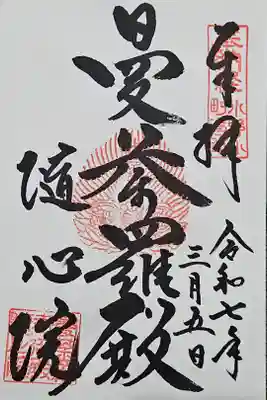 奉拝
令和七年
三月五日
曼荼羅殿
随心院